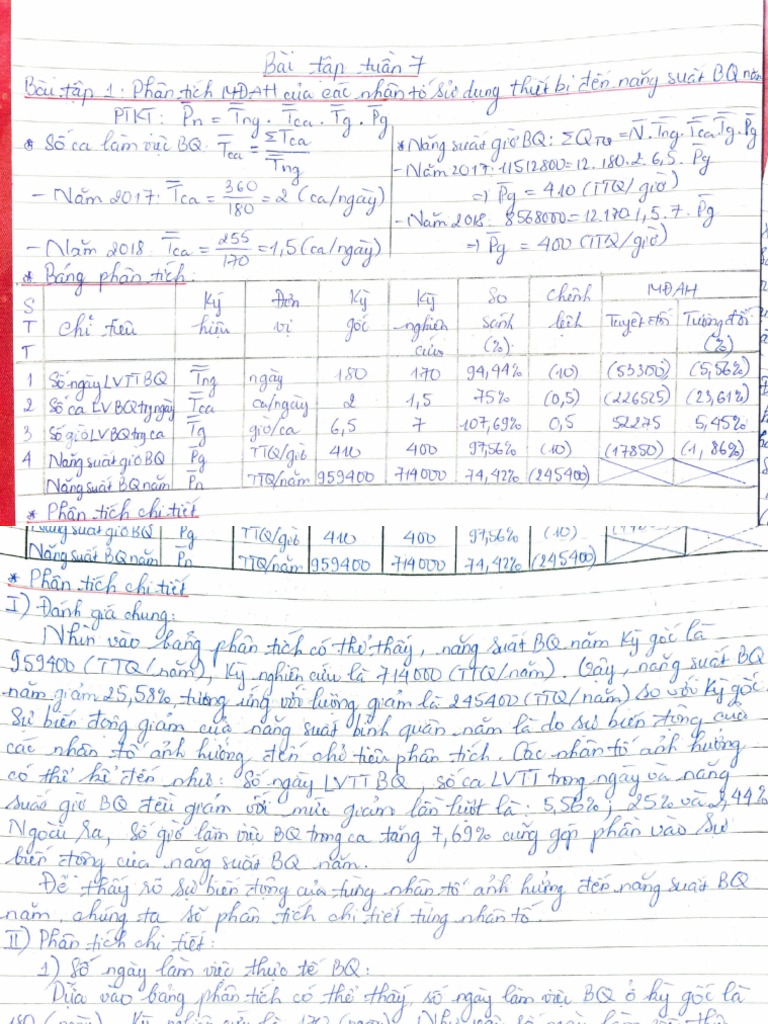 Bài tập tuần 7
Bài tập 1: Phân tích MĐAH của các nhân tố sử dụng thiết bị đến năng suất BQ năm
PTKT: P̄n = T̄ng . T̄ca . T̄g . P̄g
* Số ca làm việc BQ: T̄ca = ΣTca / T̄ng
- Năm 2017: T̄ca = 360/180 = 2 (ca/ngày)
- Năm 2018: T̄ca = 255/170 = 1,5 (ca/ngày)
* Năng suất giờ BQ: ΣQTTQ = N̄. T̄ng. T̄ca T̄g. P̄g
- Năm 2017: 11512800 = 12. 180. 2. 6,5. P̄g
=> P̄g = 410 (TTQ/giờ)
- Năm 2018. 8568000 = 12.170.1,5.7. P̄g
=> P̄g = 400 (TTQ/giờ)
* Bảng phân tích:
STT Chỉ tiêu Ký hiệu Đơn vị Kỳ gốc Kỳ nghiên cứu So sánh (%) Chênh lệch MĐAH Tuyệt đối Tương đối (%)
1 Số ngày LVTT BQ T̄ng ngày 180 170 94,44% (10) (53300) (5,56%)
2 Số ca LVBQ trg ngày T̄ca ca/ngày 2 1,5 75% (0,5) (226525) (23,61%)
3 Số giờ LVBQ trg ca T̄g giờ/ca 6,5 7 107,69% 0,5 52275 5,45%
4 Năng suất giờ BQ P̄g TTQ/giờ 410 400 97,56% (10) (17850) (1,86%)
Năng suất BQ năm P̄n TTQ/năm 959400 714000 74,42% (245400)
* Phân tích chi tiết
Năng suất giờ BQ P̄g TTQ/giờ 410 400 97,56% (10)
Năng suất BQ năm P̄n TTQ/năm 959400 714000 74,42% (245400)
* Phân tích chi tiết
I) Đánh giá chung:
Nhìn vào bảng phân tích có thể thấy, năng suất BQ năm kỳ gốc là
959400 (TTQ/năm), kỳ nghiên cứu là 714000 (TTQ/năm). Vậy, năng suất BQ
năm giảm 25,58%, tương ứng với lượng giảm là 245400 (TTQ/năm) so với kỳ gốc.
Sự biến động giảm của năng suất bình quân năm là do sự biến động của
các nhân tố ảnh hưởng đến chỉ tiêu phân tích. Các nhân tố ảnh hưởng
có thể kể đến như: Số ngày LVTT BQ, số ca LVTT trong ngày và năng
suất giờ BQ đều giảm với mức giảm lần lượt là: 5,56%; 25% và 2,44%
Ngoài ra, số giờ làm việc BQ trong ca tăng 7,69% cũng góp phần vào sự
biến động của năng suất BQ năm.
Để thấy rõ sự biến động của từng nhân tố ảnh hưởng đến năng suất BQ
năm, chúng ta sẽ phân tích chi tiết từng nhân tố.
II) Phân tích chi tiết:
1) Số ngày làm việc thực tế BQ:
Dựa vào bảng phân tích có thể thấy, số ngày làm việc BQ ở kỳ gốc là